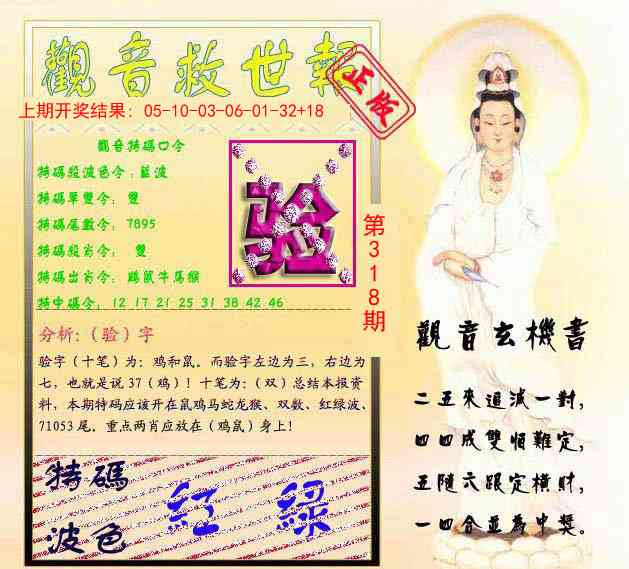 觀音救世報
正版
上期开奖结果：05-10-03-06-01-32+18
觀音特碼口令
特碼段波色令：藍波
特碼單雙令： 雙
特碼尾數令： 7895
特碼段肖令： 雙
特碼出肖令： 鷄鼠牛馬猴
特中碼令： 12 17 21 25 31 38 42 46
验
第318期
分析:（验）字
验字（十笔）为：鸡和鼠。而验字左边为三，右边为
七，也就是说 37（鸡）！十笔为：（双）总结本报资
料，本期特码应该开在鼠鸡马蛇龙猴、双数、红绿波、
71053 尾。重点两肖应放在（鸡鼠）身上！
特碼
波色
紅 綠
觀音玄機書
二五來追減一對,
四四成雙恒難定,
五隨六跟定橫財,
一四合並爲中獎。